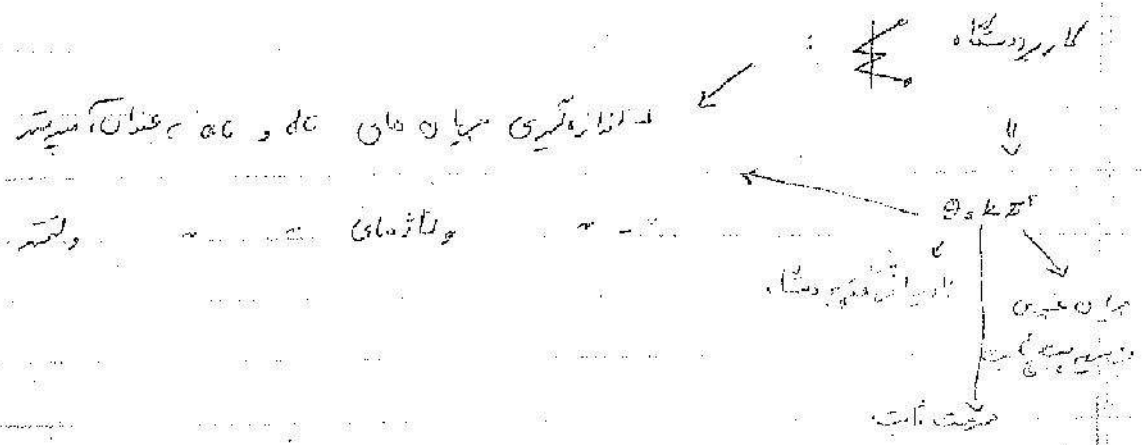 کاربرد دستگاه :
اندازه گیری جریان های dc و ac به عنوان آمپرمتر
" " ولتاژهای " " ولتمتر
θ = k I²
زاویه انحراف عقربه دستگاه
جریان عبوری
ضریب ثابت